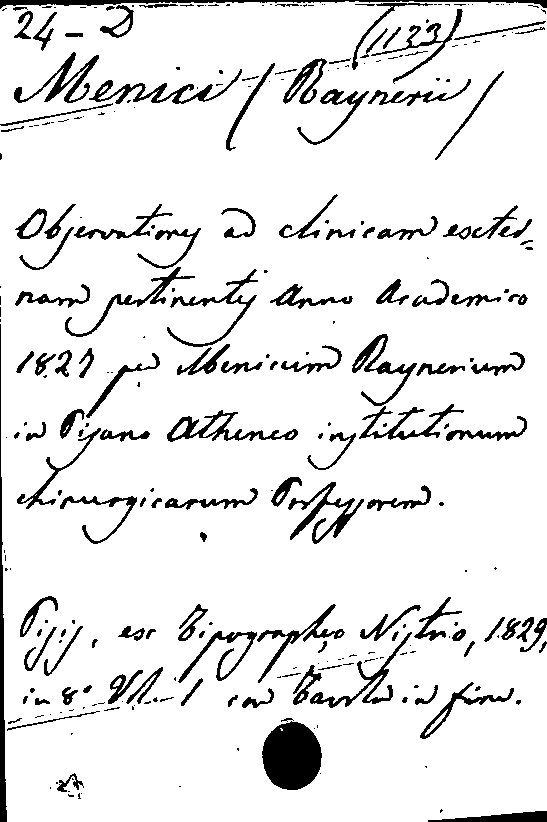 24 - D (1123)
Menici (Raynerii)
Observationes ad clinicam exter=
nam pertinentes Anno Academico
1827 per Menicium Raynerium
in Pisano Atheneo institutionum
chirurgicarum Professorem.
Pisis, ex Tipographeo Nistrio, 1829,
in 8° Vol. 1 con Tavola in fine.